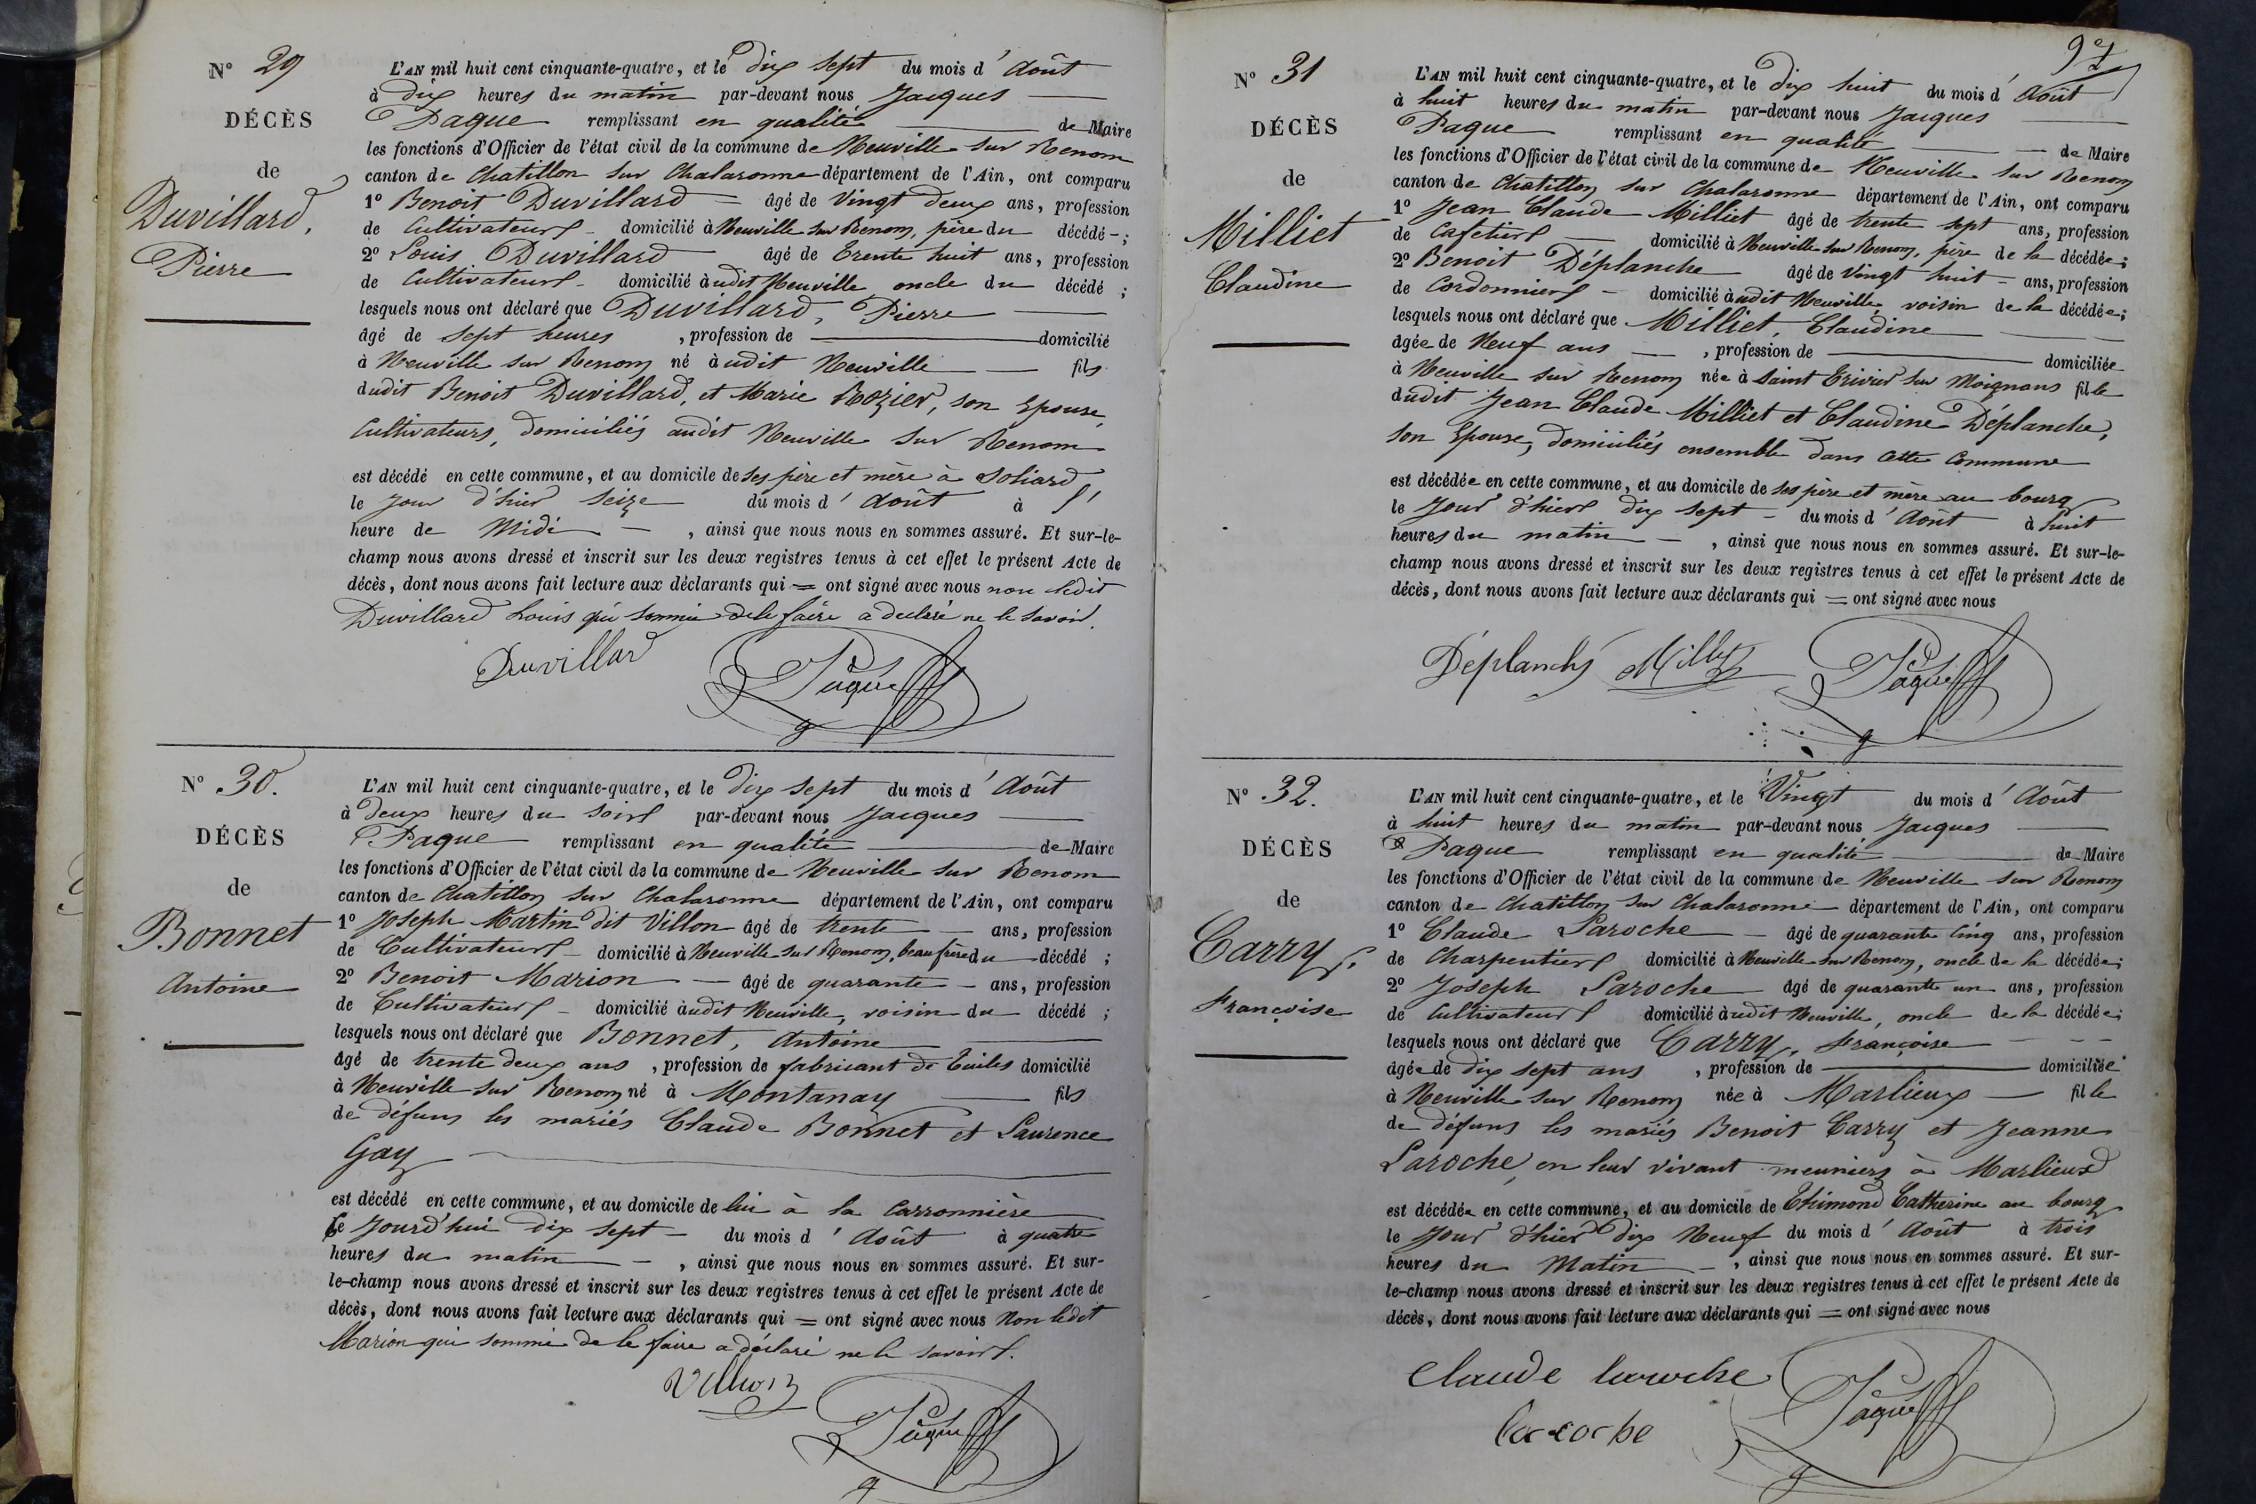 Nº 29
DÉCÈS
de
Duvillard,
Pierre
L'AN mil huit cent cinquante-quatre, et le dix sept du mois d'Août
à dix heures du matin par-devant nous Jacques
Paque remplissant en qualité de Maire
les fonctions d'Officier de l'état civil de la commune de Neuville sur Renom
canton de Chatillon sur Chalaronne département de l'Ain, ont comparu
1º Benoit Duvillard âgé de Vingt deux ans, profession
de Cultivateur domicilié à Neuville sur Renom, père du décédé ;
2º Louis Duvillard âgé de Trente huit ans, profession
de Cultivateur domicilié àudit Neuville oncle du décédé ;
lesquels nous ont déclaré que Duvillard, Pierre
âgé de sept heures , profession de domicilié
à Neuville sur Renom né àudit Neuville fils
dudit Benoit Duvillard, et Marie Rozier, son Epouse,
Cultivateurs, domiciliés audit Neuville sur Renom
est décédé en cette commune, et au domicile de ses père et mère à Soliard
le jour d'hier seize du mois d'Août à l'
heure de Midi , ainsi que nous nous en sommes assuré. Et sur-le-
champ nous avons dressé et inscrit sur les deux registres tenus à cet effet le présent Acte de
décès, dont nous avons fait lecture aux déclarants qui = ont signé avec nous non ledit
Duvillard Louis qui sommé de le faire a déclaré ne le savoir.
Duvillard Paque
Nº 30.
DÉCÈS
de
Bonnet
Antoine
L'AN mil huit cent cinquante-quatre, et le dix sept du mois d'Août
à deux heures du soir par-devant nous Jacques
Paque remplissant en qualité de Maire
les fonctions d'Officier de l'état civil de la commune de Neuville sur Renom
canton de Chatillon sur Chalaronne département de l'Ain, ont comparu
1º Joseph Martin dit Villon âgé de trente ans, profession
de Cultivateur domicilié à Neuville sur Renom, beau frère du décédé ;
2º Benoit Marion âgé de quarante ans, profession
de Cultivateur domicilié àudit Neuville, voisin du décédé ;
lesquels nous ont déclaré que Bonnet, Antoine
âgé de trente deux ans , profession de fabricant de Tuiles domicilié
à Neuville sur Renom né à Montanay fils
de défuns les mariés Claude Bonnet et Laurence
Gay
est décédé en cette commune, et au domicile de lui à la Carronnière
le jourd'hui dix sept du mois d'Août à quatre
heures du matin , ainsi que nous nous en sommes assuré. Et sur-
le-champ nous avons dressé et inscrit sur les deux registres tenus à cet effet le présent Acte de
décès, dont nous avons fait lecture aux déclarants qui = ont signé avec nous Non ledit
Marion qui sommé de le faire a déclaré ne le savoir.
Villon Paque
97
Nº 31
DÉCÈS
de
Milliet
Claudine
L'AN mil huit cent cinquante-quatre, et le dix huit du mois d'Août
à huit heures du matin par-devant nous Jacques
Paque remplissant en qualité de Maire
les fonctions d'Officier de l'état civil de la commune de Neuville sur Renom
canton de Chatillon sur Chalaronne département de l'Ain, ont comparu
1º Jean Claude Milliet âgé de trente sept ans, profession
de Cafetier domicilié à Neuville sur Renom, père de la décédée ;
2º Benoit Déplanche âgé de Vingt huit ans, profession
de Cordonnier domicilié àudit Neuville, voisin de la décédée ;
lesquels nous ont déclaré que Milliet, Claudine
âgée de Neuf ans , profession de domiciliée
à Neuville sur Renom née à Saint Trivier sur Moignans fille
dudit Jean Claude Milliet et Claudine Déplanche,
son Epouse, domiciliés ensemble dans cette Commune
est décédée en cette commune, et au domicile de ses père et mère au bourg
le jour d'hier dix sept du mois d'Août à huit
heures du matin , ainsi que nous nous en sommes assuré. Et sur-le-
champ nous avons dressé et inscrit sur les deux registres tenus à cet effet le présent Acte de
décès, dont nous avons fait lecture aux déclarants qui = ont signé avec nous
Déplanche Paque
Nº 32.
DÉCÈS
de
Carry,
Françoise
L'AN mil huit cent cinquante-quatre, et le Vingt du mois d'Août
à huit heures du matin par-devant nous Jacques
Paque remplissant en qualité de Maire
les fonctions d'Officier de l'état civil de la commune de Neuville sur Renom
canton de Chatillon sur Chalaronne département de l'Ain, ont comparu
1º Claude Laroche âgé de quarante cinq ans, profession
de Charpentier domicilié à Neuville sur Renom, oncle de la décédée ;
2º Joseph Laroche âgé de quarante un ans, profession
de Cultivateur domicilié àudit Neuville, oncle de la décédée ;
lesquels nous ont déclaré que Carry, Françoise
âgée de dix sept ans , profession de domiciliée
à Neuville sur Renom née à Marlieux fille
de défuns les mariés Benoit Carry et Jeanne
Laroche, en leur vivant meuniers à Marlieux
est décédée en cette commune, et au domicile de Thimond Catherine au bourg
le jour d'hier dix Neuf du mois d'Août à trois
heures du Matin , ainsi que nous nous en sommes assuré. Et sur-
le-champ nous avons dressé et inscrit sur les deux registres tenus à cet effet le présent Acte de
décès, dont nous avons fait lecture aux déclarants qui = ont signé avec nous
Claude laroche Paque
laroche